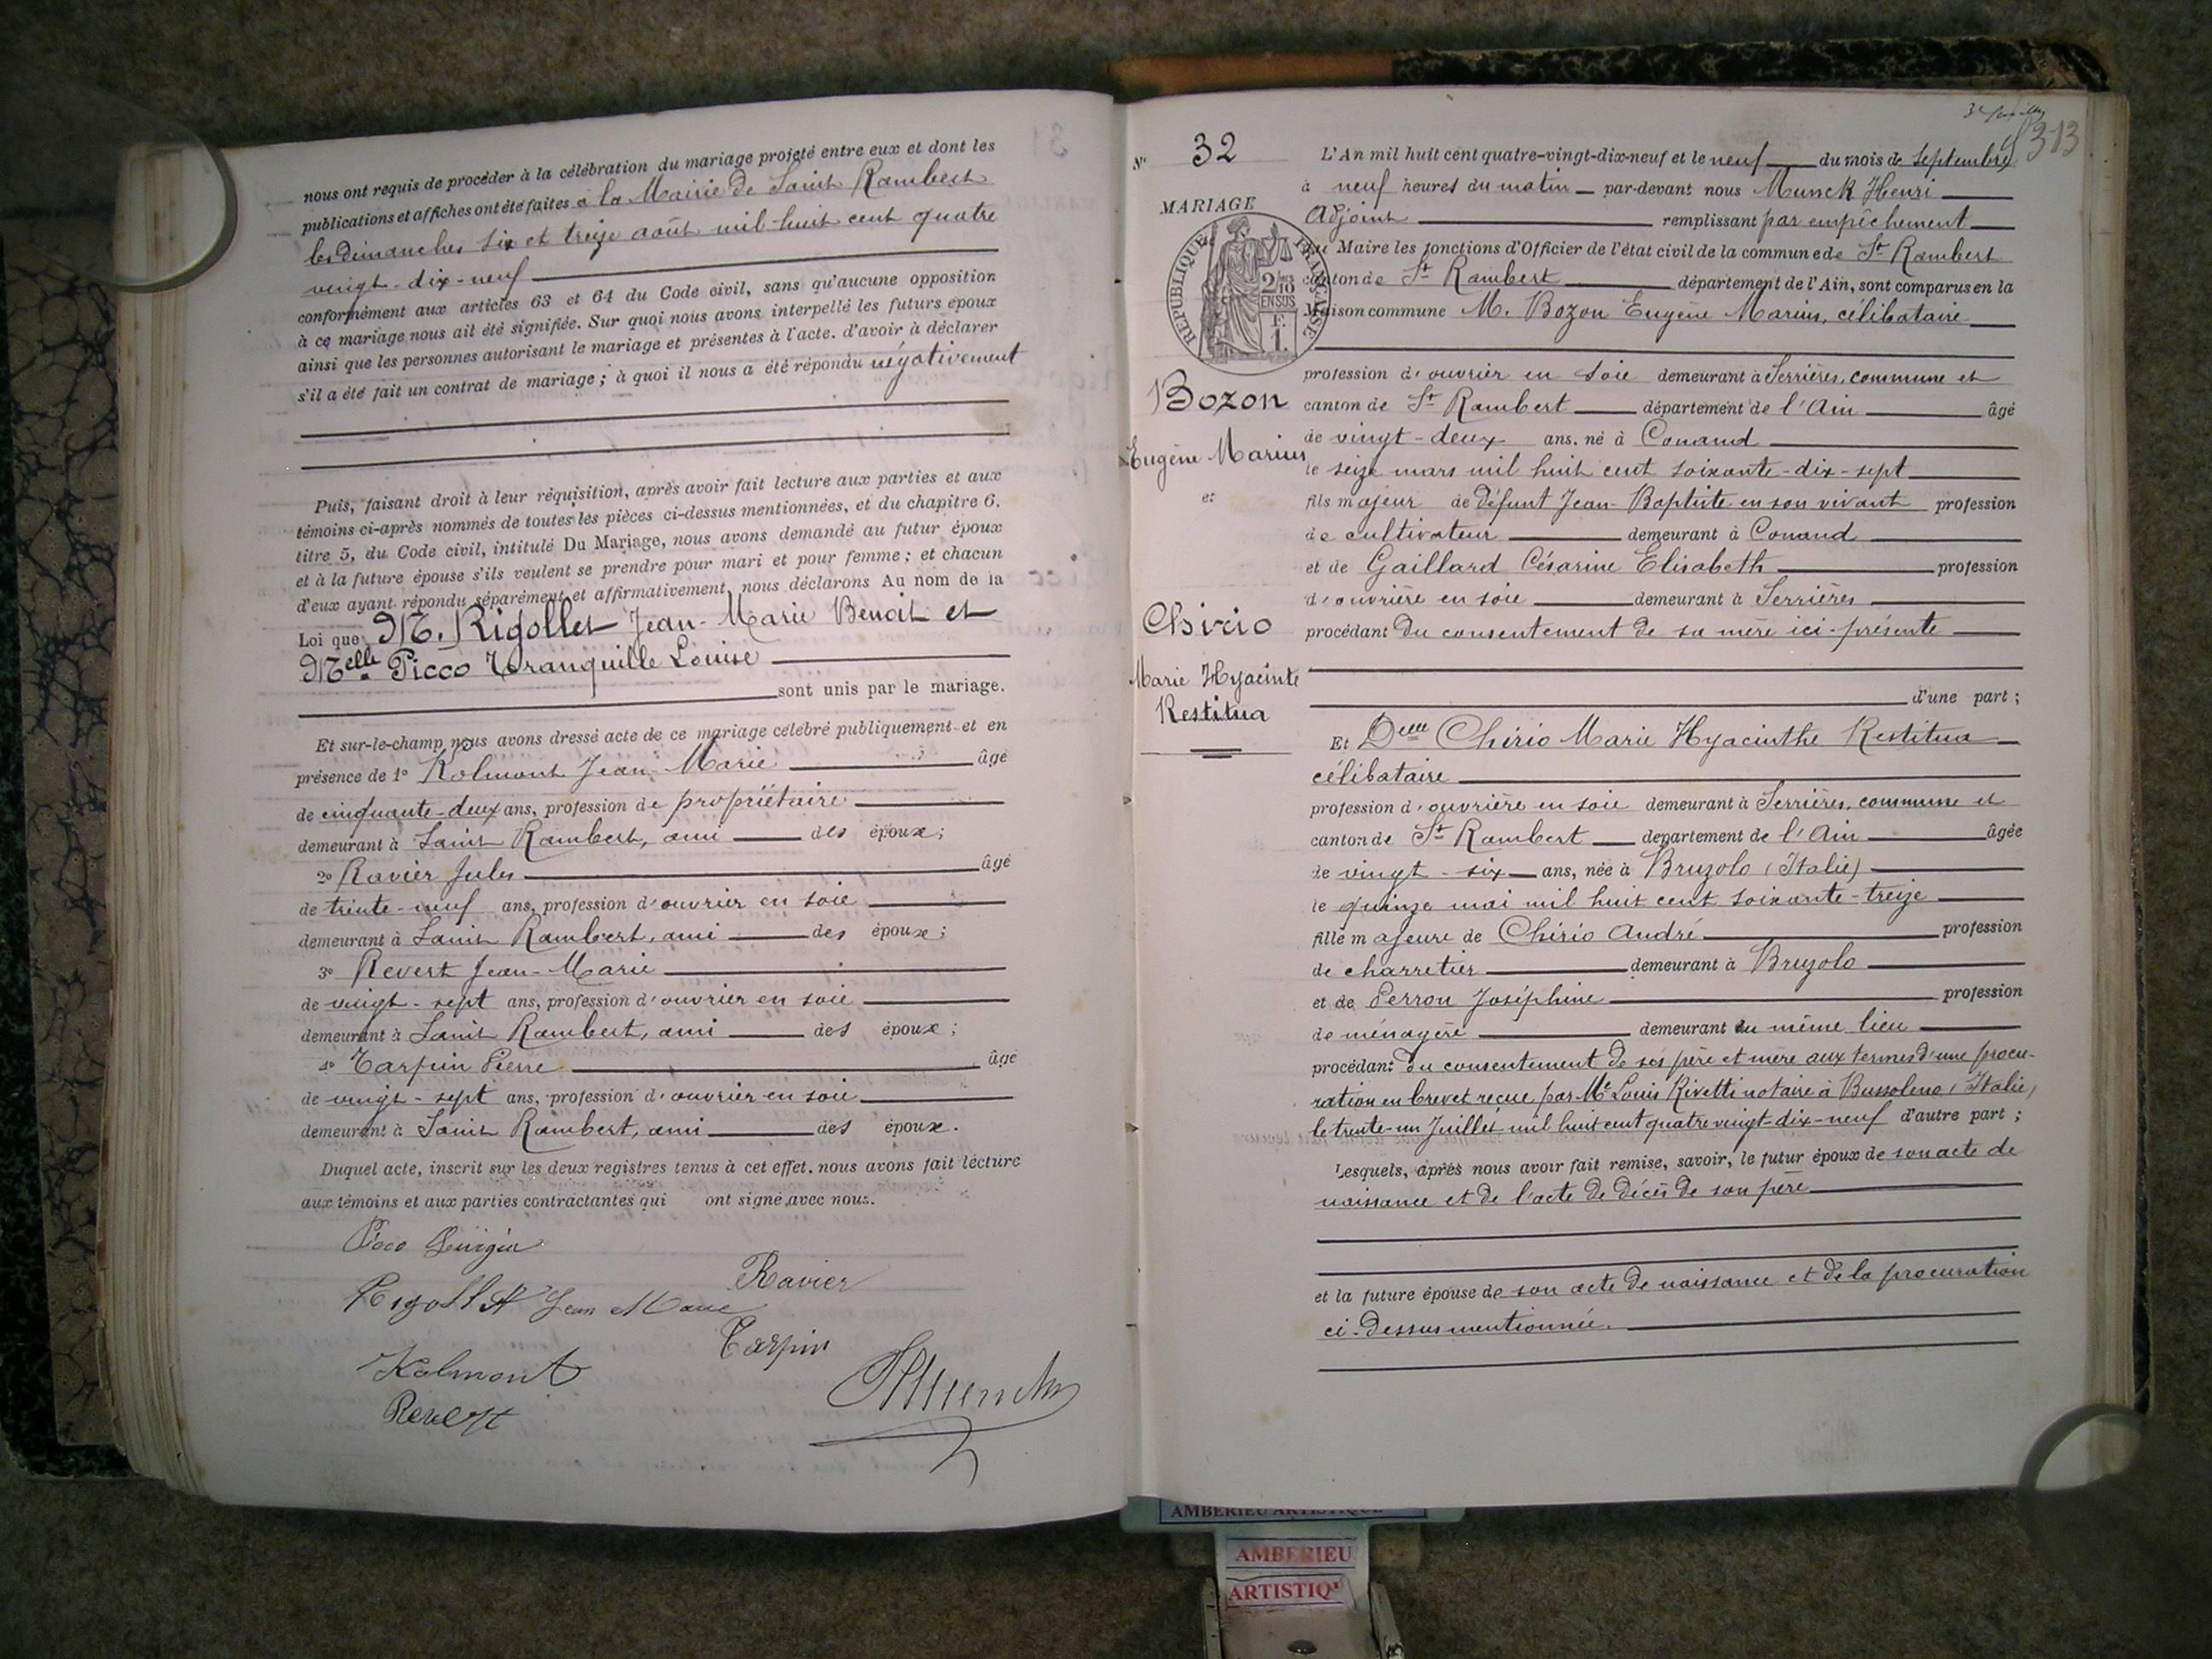 nous ont requis de procéder à la célébration du mariage projeté entre eux et dont les
publications et affiches ont été faites à la Mairie de Saint Rambert
les dimanches six et treize août mil-huit cent quatre
vingt-dix-neuf
conformément aux articles 63 et 64 du Code civil, sans qu'aucune opposition
à ce mariage nous ait été signifiée. Sur quoi nous avons interpellé les futurs époux
ainsi que les personnes autorisant le mariage et présentes à l'acte. d'avoir à déclarer
s'il a été fait un contrat de mariage; à quoi il nous a été répondu négativement
Puis, faisant droit à leur réquisition, après avoir fait lecture aux parties et aux
témoins ci-après nommés de toutes les pièces ci-dessus mentionnées, et du chapitre 6.
titre 5, du Code civil, intitulé Du Mariage, nous avons demandé au futur époux
et à la future épouse s'ils veulent se prendre pour mari et pour femme; et chacun
d'eux ayant répondu séparément et affirmativement nous déclarons Au nom de la
Loi que M. Rigollet Jean-Marie Benoit et
Melle Picco Tranquille Louise
sont unis par le mariage.
Et sur-le-champ nous avons dressé acte de ce mariage célébré publiquement et en
présence de 1º Kolmont Jean-Marie âgé
de cinquante-deux ans, profession de propriétaire
demeurant à Saint Rambert, ami des époux;
2º Ravier Jules âgé
de trente-neuf ans, profession d'ouvrier en soie
demeurant à Saint Rambert, ami des époux;
3º Revert Jean-Marie
de vingt-sept ans, profession d'ouvrier en soie
demeurant à Saint Rambert, ami des époux;
4º Tarpin Pierre âgé
de vingt-sept ans, profession d'ouvrier en soie
demeurant à Saint Rambert, ami des époux.
Duquel acte, inscrit sur les deux registres tenus à cet effet. nous avons fait lecture
aux témoins et aux parties contractantes qui ont signé avec nous.
Ravier
Jean Marie
Tarpin
Kolmont
Revert
Munck
313
Nº 32
MARIAGE
RÉPUBLIQUE FRANÇAISE
2/10 EN SUS
F. 1.
Bozon
Eugène Marius
et
Chirio
Marie Hyacinte
Restitua
L'An mil huit cent quatre-vingt-dix-neuf et le neuf du mois de Septembre
à neuf heures du matin par-devant nous Munck Henri
Adjoint remplissant par empêchement
du Maire les fonctions d'Officier de l'état civil de la commune de St Rambert
canton de St Rambert département de l'Ain, sont comparus en la
Maison commune M. Bozon Eugène Marius, célibataire
profession d'ouvrier en soie demeurant à Serrières, commune et
canton de St Rambert département de l'Ain âgé
de vingt-deux ans. né à Conand
le seize mars mil huit cent soixante-dix-sept
fils majeur de défunt Jean-Baptiste en son vivant profession
de cultivateur demeurant à Conand
et de Gaillard Césarine Elisabeth profession
d'ouvrière en soie demeurant à Serrières
procédant du consentement de sa mère ici-présente
d'une part;
Et Delle Chirio Marie Hyacinthe Restitua
célibataire
profession d'ouvrière en soie demeurant à Serrières, commune et
canton de St Rambert département de l'Ain âgée
de vingt-six ans, née à Bruzolo (Italie)
le quinze mai mil huit cent soixante-treize
fille majeure de Chirio André profession
de charretier demeurant à Bruzolo
et de Perron Joséphine profession
de ménagère demeurant au même lieu
procédant du consentement de ses père et mère aux termes d'une procu-
ration en brevet reçue par Me Louis Rivetti notaire à Bussoleno (Italie)
le trente-un Juillet mil huit cent quatre vingt-dix-neuf d'autre part;
Lesquels, après nous avoir fait remise, savoir, le futur époux de son acte de
naissance et de l'acte de décès de son père
et la future épouse de son acte de naissance et de la procuration
ci-dessus mentionnée.
AMBERIEU ARTISTIQUE
AMBERIEU
ARTISTIQ